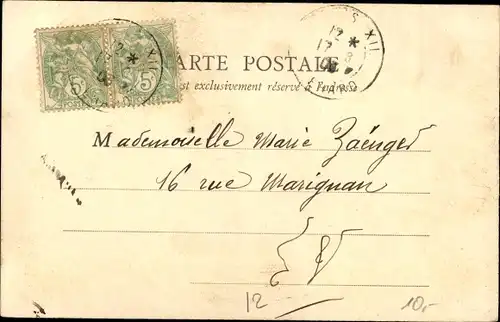 CARTE POSTALE
exclusivement réservé à l'adresse
M
ademoiselle Marie Zaënger
16 rue Marignan
E V
12
10,-
5 5
XII
12 *
17 8